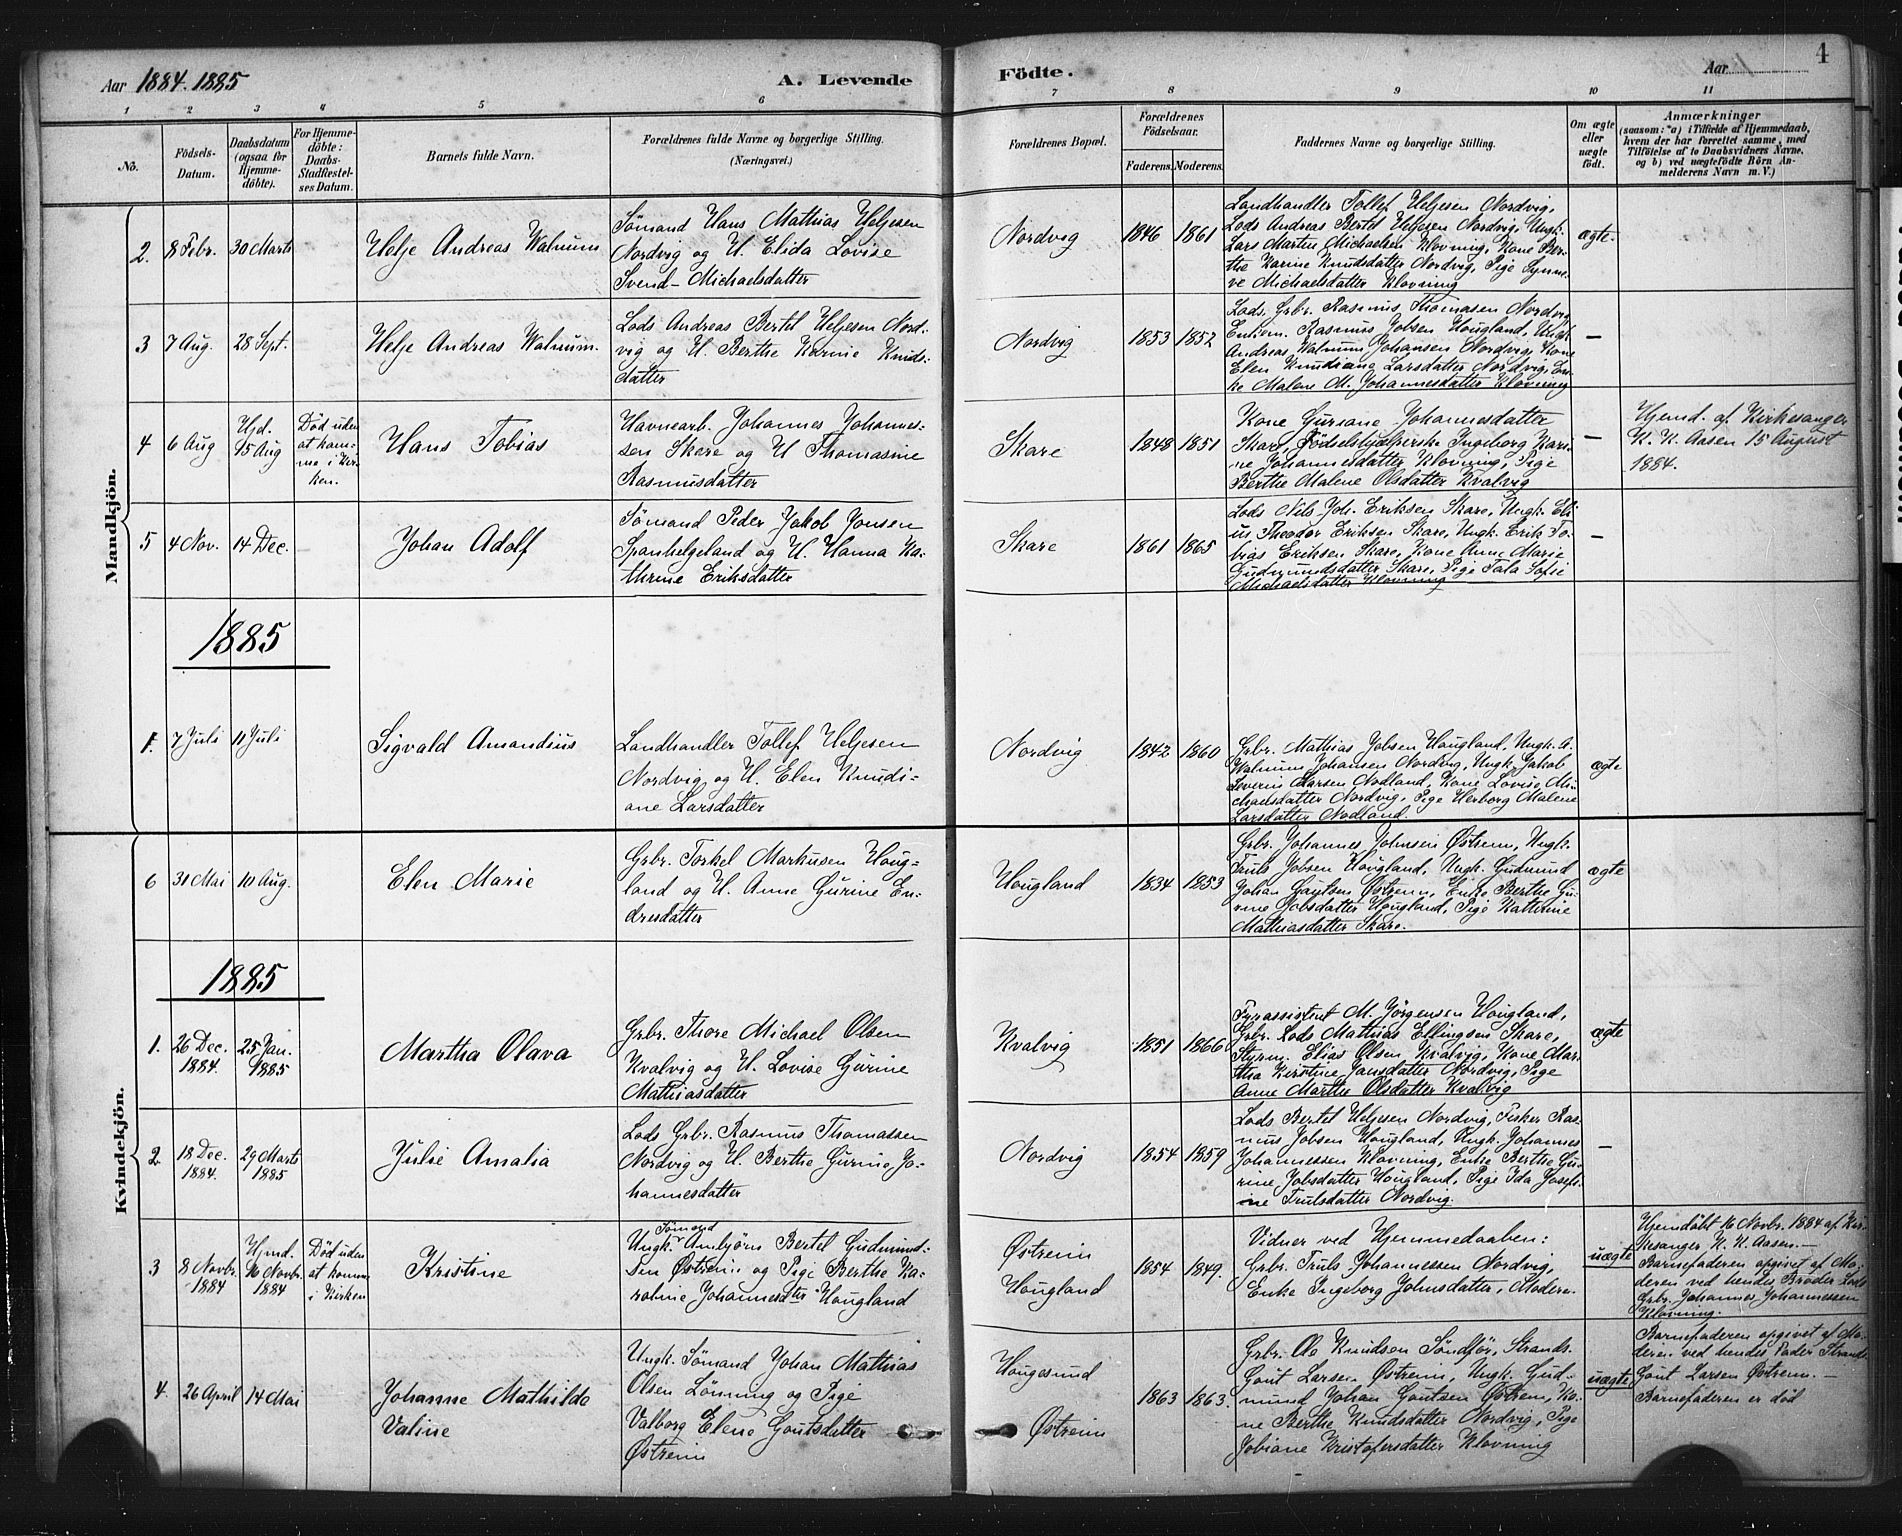 Aar 1884. 1885
A. Levende Födte.
Aar
4
1 2 3 4 5 6 7 8 9 10 11
No.
Födsels-
Datum.
Daabsdatum
(ogsaa for
Hjemme-
döbte).
For Hjemme-
döbte:
Daabs-
Stadfæstel-
ses Datum.
Barnets fulde Navn.
Forældrenes fulde Navne og borgerlige Stilling.
(Næringsvei.)
Forældrenes Bopæl.
Forældrenes
Födselsaar.
Faderens. Moderens.
Faddernes Navne og borgerlige Stilling.
Om ægte
eller
uægte
födt.
Anmærkninger
(saasom: a) i Tilfælde af Hjemmedaab,
hvem der har forrettet samme, med
Tilföielse af to Daabsvidners Navne,
og b) ved uægtefödte Börn An-
melderens Navn m. V.)
Mandkjön.
2. 8 Febr. 30 Marts
Helje Andreas Walnum
Sømand Hans Mathias Heljesen
Nordvig og H. Elida Lovise
Svend- Michaelsdatter
Nordvig
1846 1861
Landhandler Tollef Heljesen Nordvig,
Lods Andreas Bertel Heljesen Nordvig, Ungk.
Lars Martin Michaelsen Klovning, Kone Ber-
the Karine Knudsdatter Nordvig, Pige Synne-
ve Michaelsdatter Klovning
ægte.
3 7 Aug. 28 Sept.
Helje Andreas Walnum.
Lods Andreas Bertel Heljesen Nord-
vig og H. Berthe Karine Knuds-
datter
Nordvig
1853 1852
Lods. Grbr. Rasmus Thomasen Nordvig
Enkem. Rasmus Jobsen Hougland, Ungk.
Andreas Walnum Johansen Nordvig, Kone
Elen Knudiane Larsdatter Nordvig, En-
ke Malene M. Johannesdatter Klovning
—
4 6 Aug
Hjd.
15 Aug
Död uden
at kom-
me i Kir-
ken.
Hans Tobias
Havnearb. Johannes Johannes-
sen Skare og H Thomasine
Rasmusdatter
Skare
1848 1851
Kone Gursane Johannesdatter
Skare, Födselshjælperske Ingeborg Kari-
ne Johannesdatter Klovning, Pige
Berthe Malene Olsdatter Kvalvig
—
Hjemd. af Kirkesanger
K. K. Aasen 15 August
1884.
5 4 Nov. 14 Dec. —
Johan Adolf
Sømand Peder Jakob Jonsen
Spanhelgeland og H. Hanna Ka-
thrine Eriksdatter
Skare
1861 1865
Lods Nils Joh. Eriksen Skare, Ungk. Eli-
us Theodor Eriksen Skare, Ungk. Erik To-
bias Eriksen Skare, Kone Anne Marie
Gudmundsdatter Skare, Pige Tala Sofie
Michaelsdatter Klovning
—
1885
1. 7 Juli 11 Juli
Sigvald Amandius
Landhandler Tollef Heljesen
Nordvig og H. Elen Knudi-
ane Larsdatter
Nordvig
1842 1860
Grbr. Mathias Jobsen Hougland, Ungk. A.
Walnum Johansen Nordvig, Ungk. Jakob
Severin Larsen Nodland, Kone Lovise Mi-
chaelsdatter Nordvig, Pige Herborg Malene
Larsdatter Nodland.
ægte
Kvindekjön.
6 31 Mai 10 Aug.
Elen Marie
Grbr. Torkel Markusen Houg-
land og H. Anne Gurine En-
dresdatter
Hougland
1834 1853
Grbr. Johannes Johnsen Østrem, Ungk.
Truls Jobsen Hougland, Ungk. Gudmund
Johan Goutsen Østrem, Enke Berthe Gu-
rine Jobsdatter Hougland, Pige Katherine
Mathiasdatter Skare.
ægte
1885
1. 26 Dec.
1884.
25 Jan.
1885
Martha Olava
Grbr. Thore Michael Olsen
Kvalvig og H. Lovise Gurine
Mathiasdatter
Kvalvig
1851 1866
Fyrassistent M. Jörgensen Hougland,
Grbr. Lods Mathias Ellingsen Skare,
Styrm. Elias Olsen Kvalvig, Kone Mar-
tha Kirstine Jansdatter Nordvig, Pige
Anne Marthe Olsdatter Kvalvig
ægte
2 18 Dec.
1884.
29 Marts
1885
Julie Amalia
Lods Grbr. Rasmus Thomassen
Nordvig og H. Berthe Gurine Jo-
hannesdatter
Nordvig
1854 1859
Lods Bertel Heljesen Nordvig, Fisker Ras-
mus Jobsen Hougland, Ungk. Johannes
Johannessen Klovning, Enke Berthe Gu-
rine Jobsdatter Hougland, Pige Ida Josefi-
ne Trulsdatter Nordvig.
—
3 8 Novbr.
1884
Hjmd.
16 Novbr.
1884
Död uden
at komme
i Kirken
Kristine
Sömand
Ungk. Ambjörn Bertel Gudmund-
sen Østrem og Pige Berthe Ka-
roline Johannesdatter Hougland
Østrem
Hougland
1854 1849.
Vidner ved Hjemmedaaben:
Grbr. Truls Johannessen Nordvig,
Enke Ingeborg Johnsdatter, Modere.
uægte
Hjemdöbt 16 Novbr. 1884 af Kir-
kesanger K. K. Aasen. —
Barnefaderen opgivet af Mo-
deren ved hendes Broder Lods
Grbr. Johannes Johannessen
Klovning.
4. 26 April 14 Mai
Johanne Mathilde
Valine
Ungk. Sömand Johan Mathias
Olsen Lönning og Pige
Valborg Elene Goutsdatter
Østrem
Hougesund
Østrem
1863 1863.
Grbr. Ole Knudsen Söndför, Strands.
Gout Larsen Østrem, Ungk. Gud-
mund Johan Goutsen Østrem, Ko-
ne Berthe Knudsdatter Nordvig, Pige
Jobiane Kristofersdatter Klovning
uægte
Barnefaderen opgivet af Mo-
deren ved hendes Fader Strands.
Gout Larsen Østrem. —
Barnefaderen er död